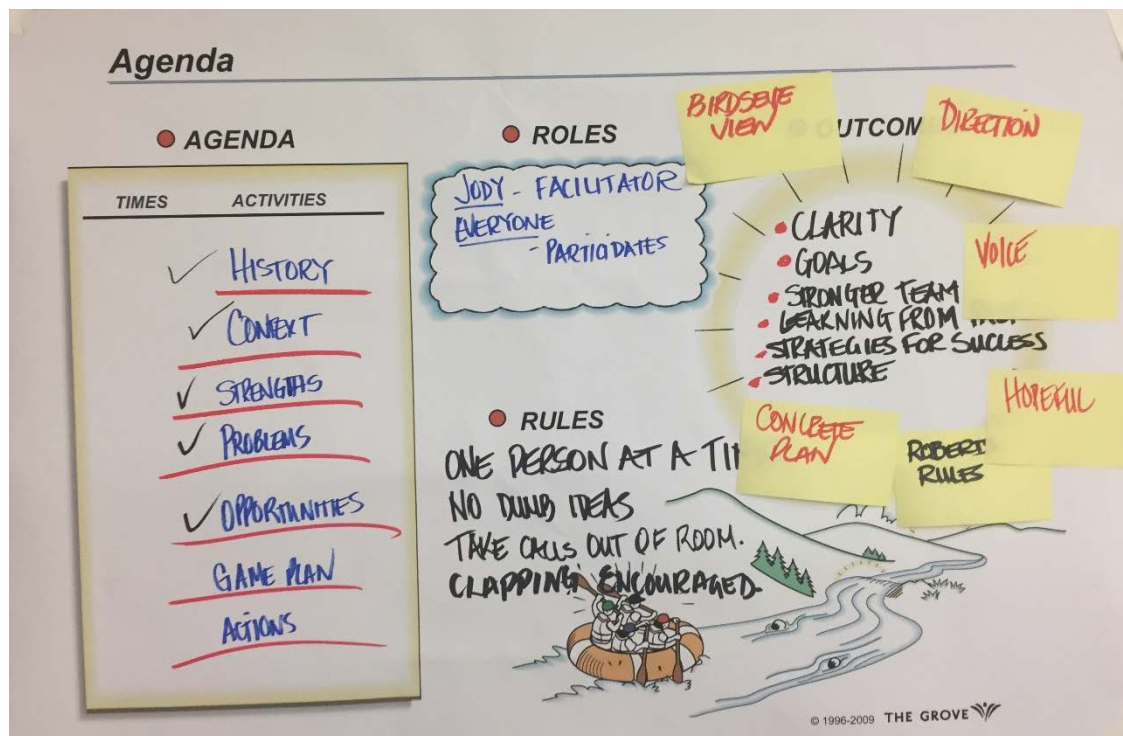 Agenda
AGENDA
TIMES ACTIVITIES
HISTORY
CONTEXT
STRENGTHS
PROBLEMS
OPPORTUNITIES
GAME PLAN
ACTIONS
ROLES
JODY - FACILITATOR
EVERYONE
- PARTICIPATES
RULES
ONE PERSON AT A
NO DUMB IDEAS
TAKE CALLS OUT OF ROOM.
CLAPPING ENCOURAGED.
BIRDSEYE
VIEW
UTCOM
DIRECTION
CLARITY
GOALS
STRONGER TEAM
LEARNING FROM
STRATEGIES FOR SUCCESS
STRUCTURE
VOICE
HOPEFUL
CONCRETE
PLAN
ROBERT
RULES
© 1996-2009 THE GROVE